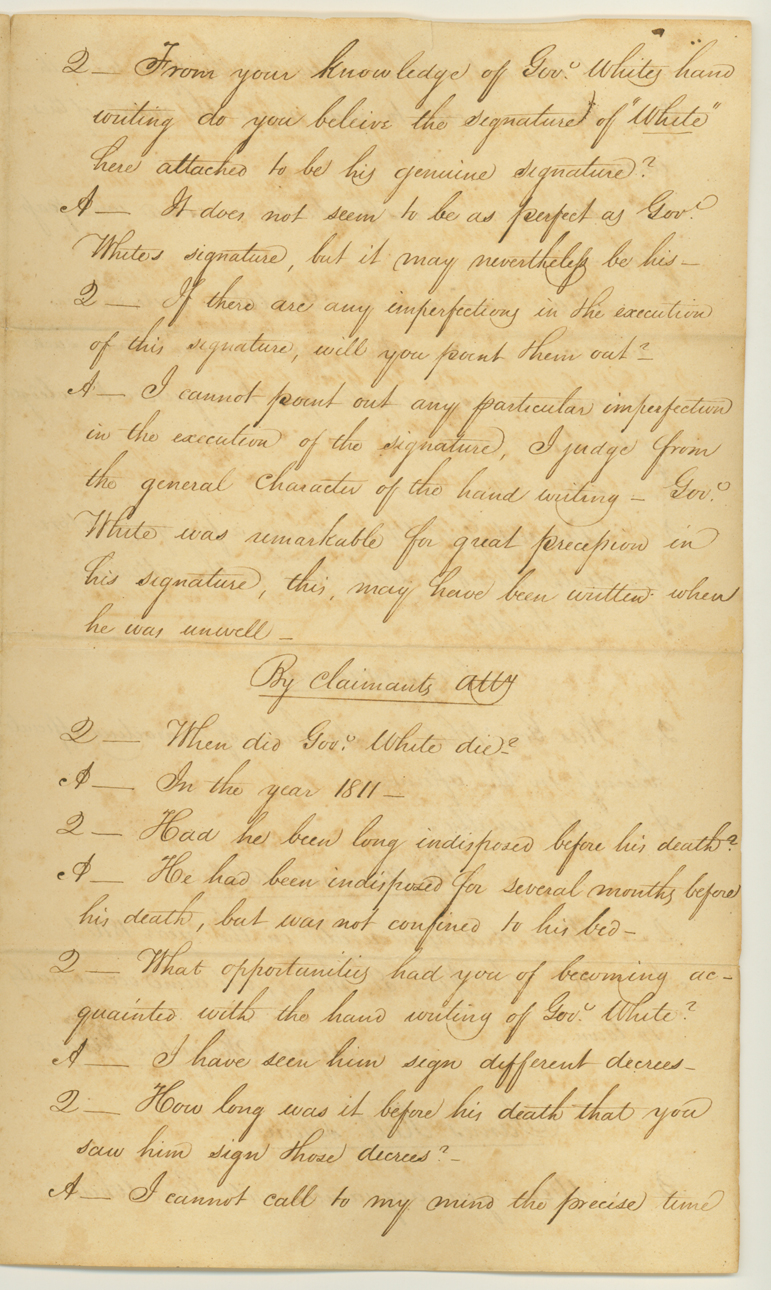 Q — From your knowledge of Gov.r Whites hand
writing do you beleive the signature of "White"
here attached to be his genuine signature?
A — It does not seem to be as perfect as Gov.r
Whites signature, but it may nevertheless be his —
Q — If there are any imperfections in the execution
of this signature, will you point them out? —
A — I cannot point out any particular imperfection
in the execution of the signature, I judge from
the general character of the hand writing — Gov.r
White was remarkable for great precepion in
his signature, this, may have been written when
he was unwell —
By claimants atty
Q — When did Gov.r White die? —
A — In the year 1811 —
Q — Had he been long indisposed before his death?
A — He had been indisposed for several months before
his death, but was not confined to his bed —
Q — What opportunities had you of becoming ac-
quainted with the hand writing of Gov.r White?
A — I have seen him sign different decrees —
Q — How long was it before his death that you
saw him sign those decrees? —
A — I cannot call to my mind the precise time